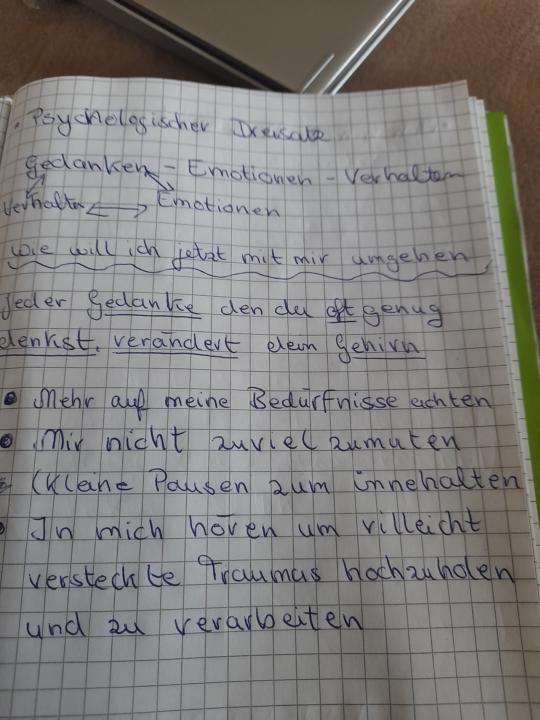 . Psychologischer Dreisatz
Gedanken - Emotionen - Verhalten
Verhalten ⟷ Emotionen
Wie will ich jetzt mit mir umgehen
Jeder Gedanke den du oft genug
denkst, verändert dein Gehirn
• Mehr auf meine Bedürfnisse achten
• Mir nicht zuviel zumuten
• Kleine Pausen zum innehalten
• In mich hören um villeicht
versteckte Traumas hochzuholen
und zu verarbeiten